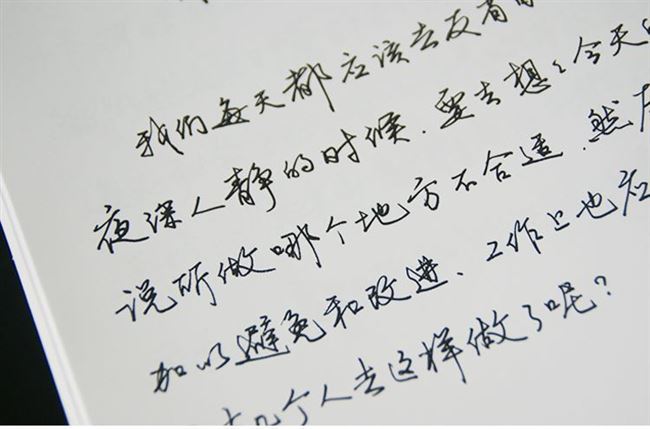 我们每天都应该去反省自
夜深人静的时候.要去想々今天
说所做哪个地方不合适.然后
加以避免和改进、工作上也
几个人去这样做了呢?